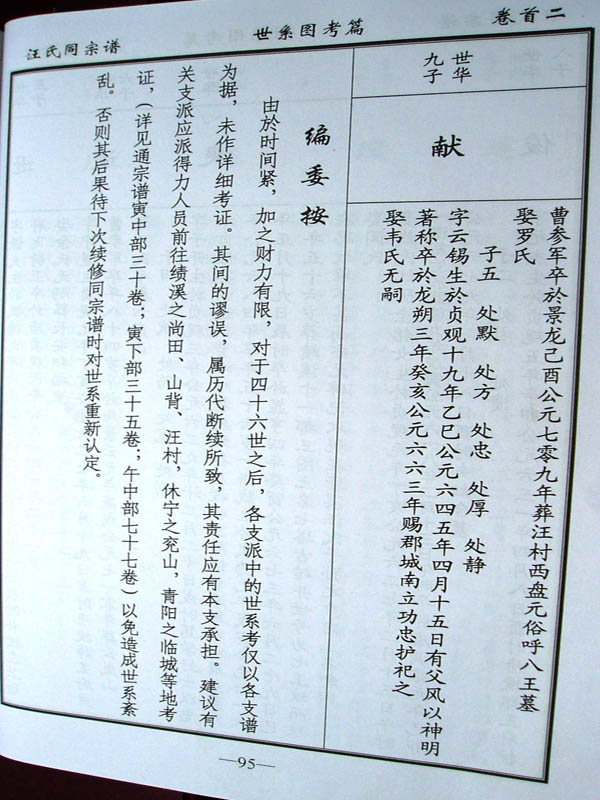 卷首二
世系图考篇
汪氏同宗谱
世华
九子
献
曹参军卒於景龙己酉公元七零九年葬汪村西盘元俗呼八王墓
娶罗氏
子五 处默 处方 处忠 处厚 处静
字云锡生於贞观十九年乙巳公元六四五年四月十五日有父风以神明
著称卒於龙朔三年癸亥公元六六三年赐郡城南立功忠护祀之
娶韦氏无嗣
编委按
由於时间紧，加之财力有限，对于四十六世之后，各支派中的世系考仅以各支谱
为据，未作详细考证。其间的谬误，属历代断续所致，其责任应有本支承担。建议有
关支派应派得力人员前往绩溪之尚田、山背、汪村，休宁之兖山，青阳之临城等地考
证，（详见通宗谱寅中部三十卷；寅下部三十五卷；午中部七十七卷）以免造成世系紊
乱。否则其后果待下次续修同宗谱时对世系重新认定。
—95—